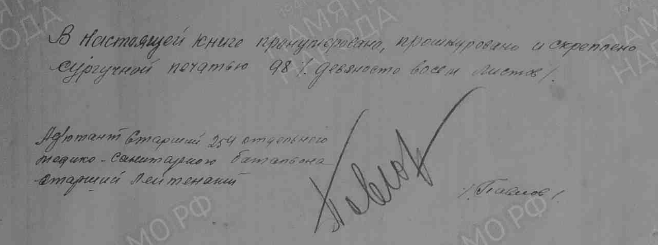 В настоящей книге пронумеровано, прошнуровано и скреплено
сургучной печатью 98 /. девяносто восем листов/.
Адъютант Старший 254 отдельного
медико-санитарного батальона
старший лейтенант
Павлов
/Павлов/